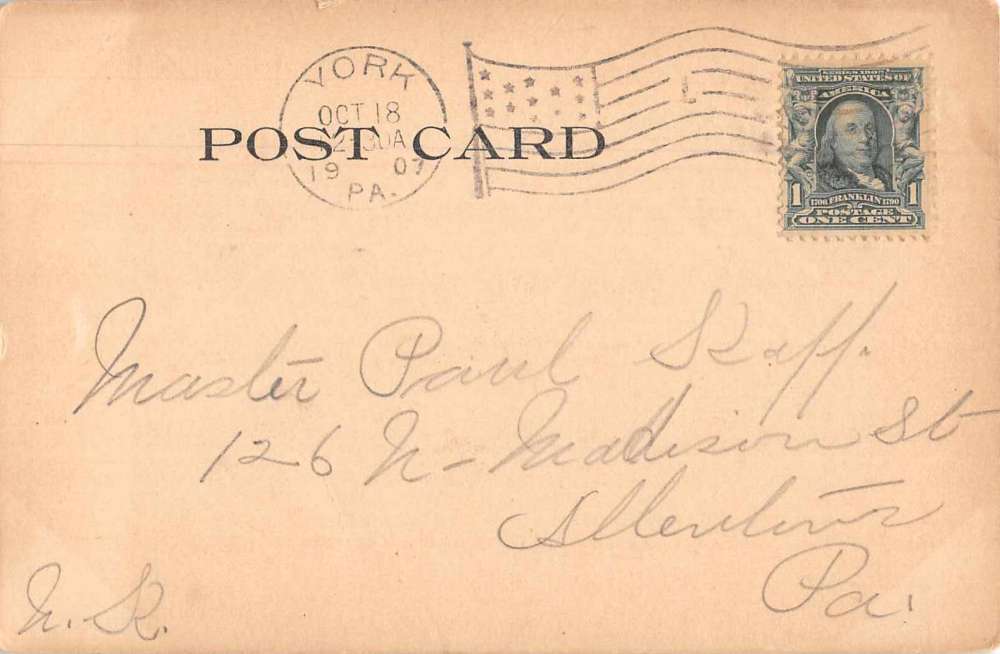 YORK
OCT 18
1907
PA.
POST CARD
SERIES 1902
UNITED STATES OF
AMERICA
1 1706 FRANKLIN 1790 1
POSTAGE
ONE CENT
Master Paul
126 N- Madison St
Allentown
Pa.